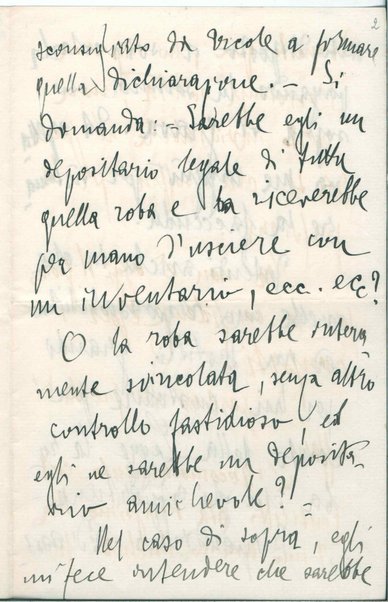 2
sconsigliato da Ercole a firmare
quella dichiarazione. – Si
domanda: – Sarebbe egli un
depositario legale di tutta
quella roba e la riceverebbe
per mano d'usciere con
un inventario, ecc. ecc?
O la roba sarebbe intera
mente svincolata, senza altro
controllo fastidioso, ed
egli ne sarebbe un deposita-
rio amichevole? –
Nel caso di sopra, egli
mi fece intendere che sarebbe